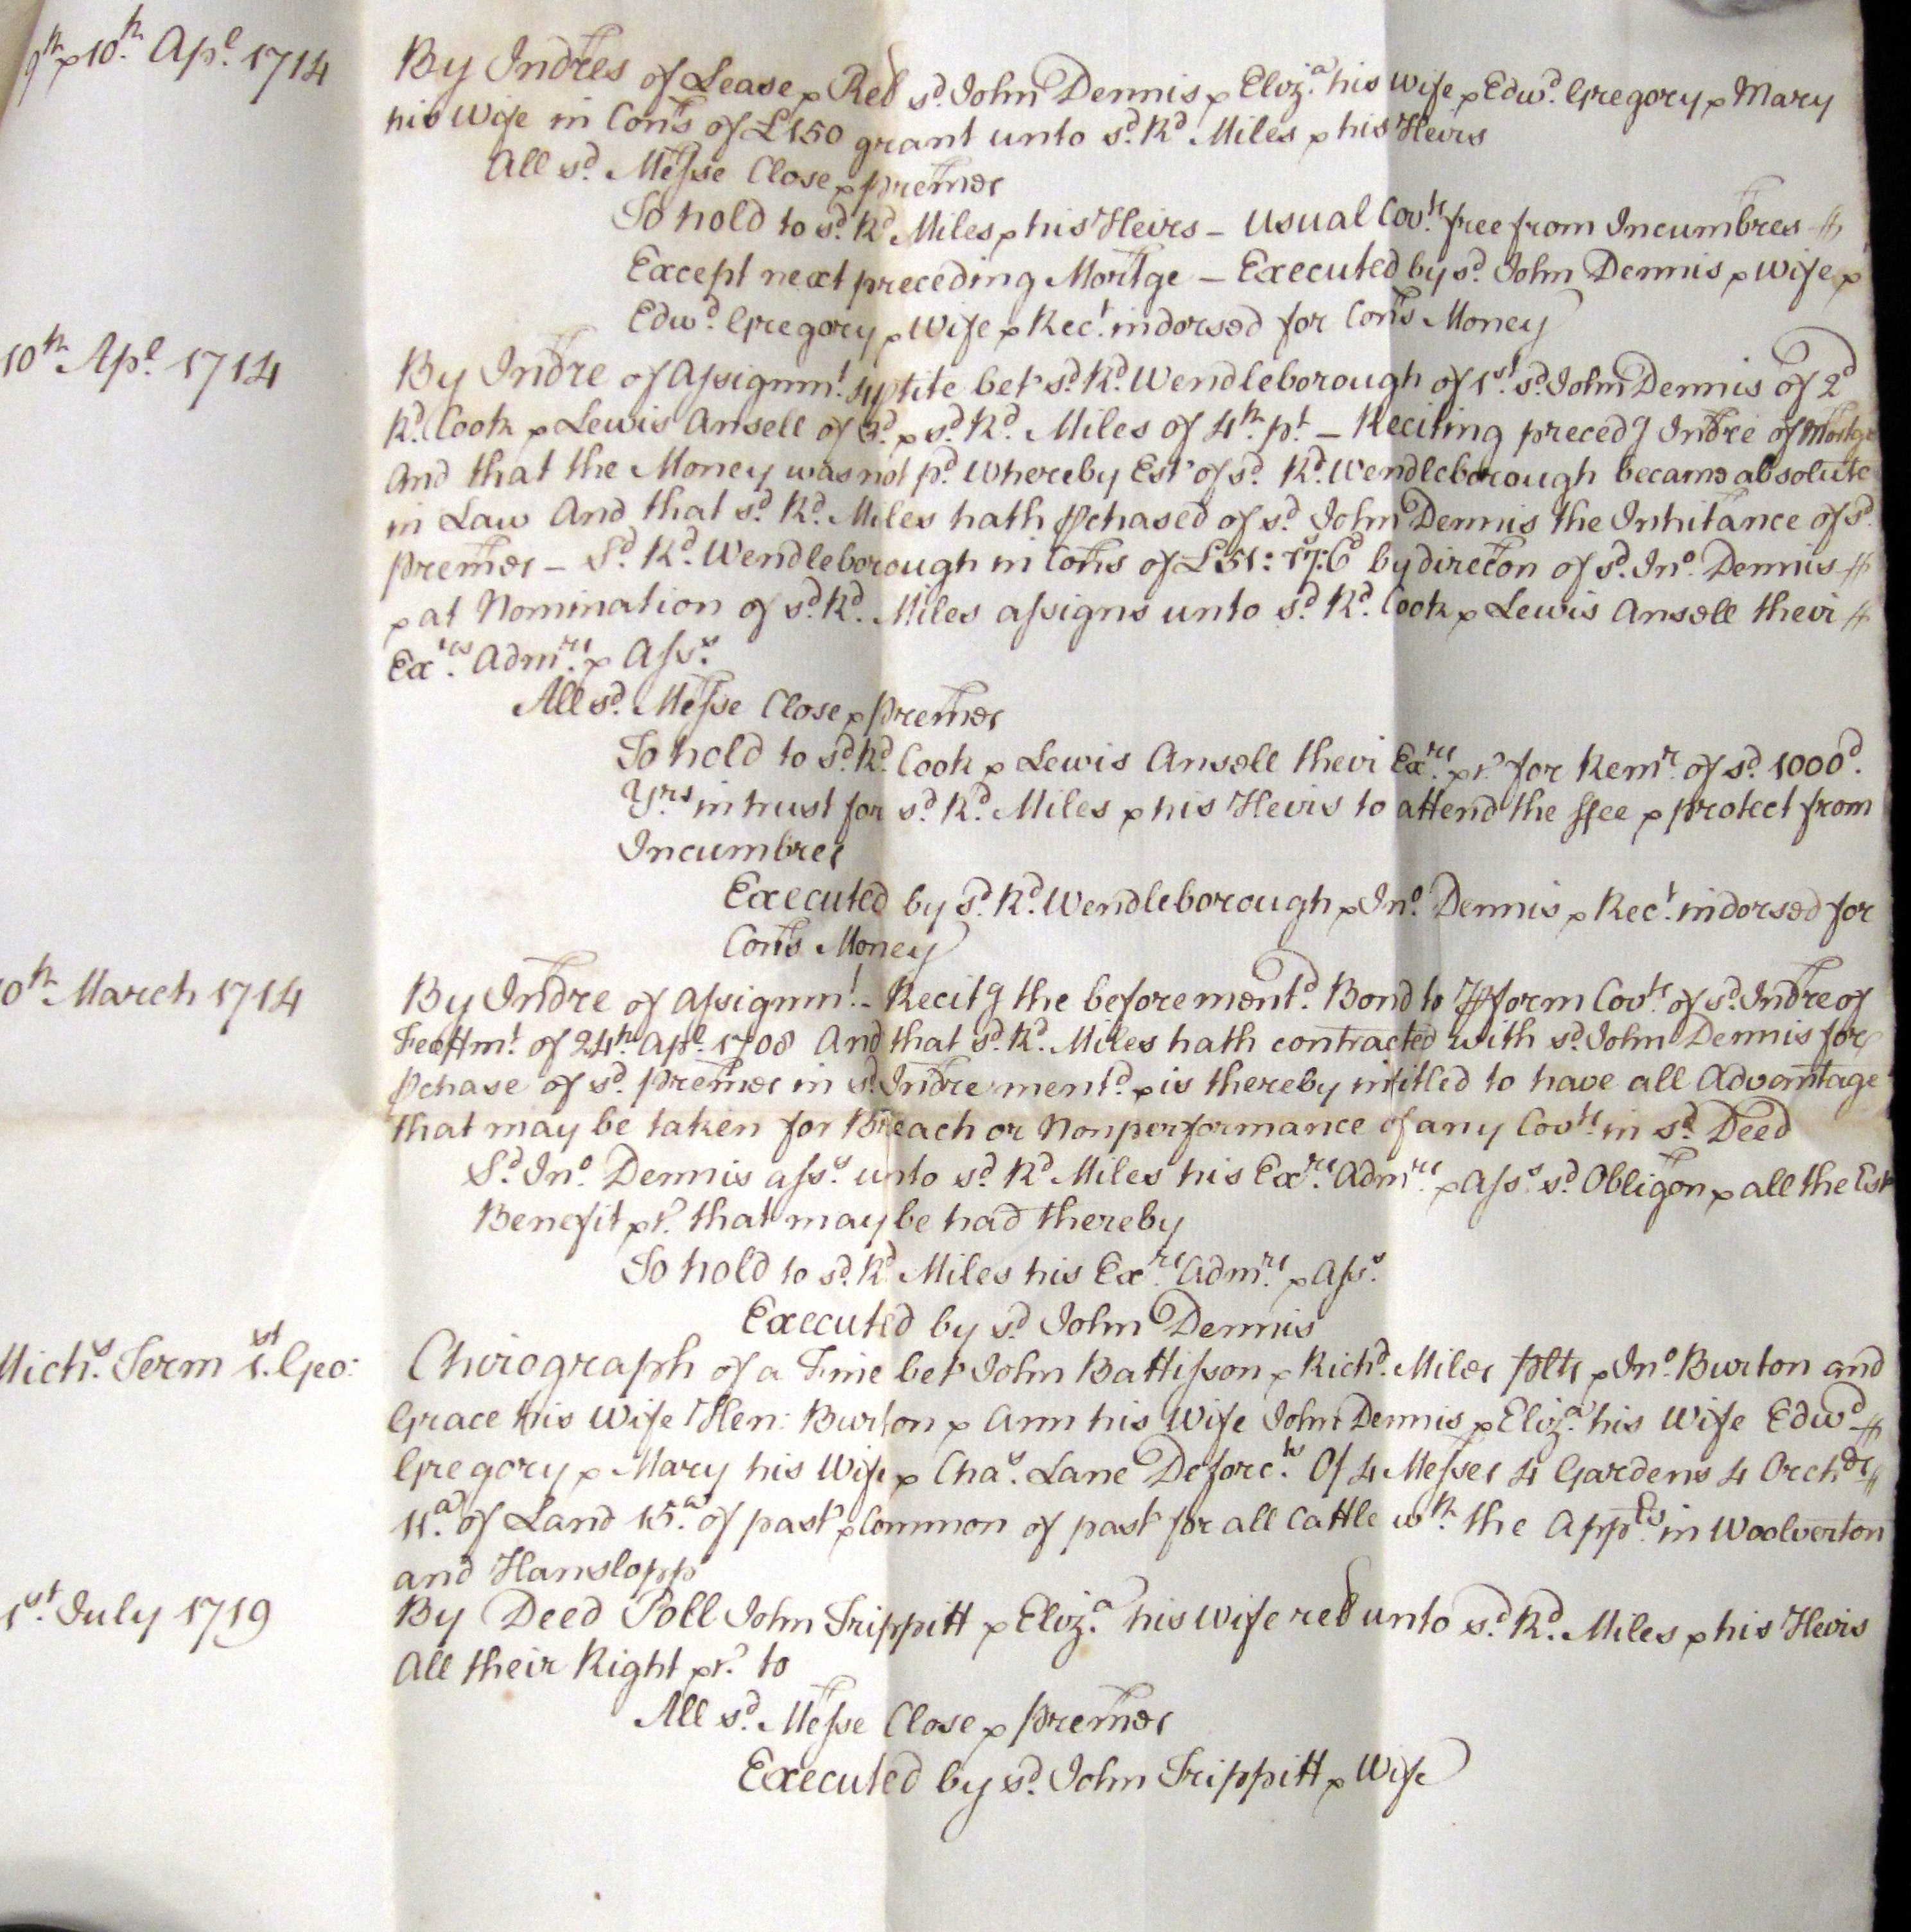 9th & 10th Apl 1714
By Indres of Lease & Rel sd John Dennis & Eliza his Wife & Edwd Gregory & Mary
his Wife in Cons of £150 grant unto sd Rd Miles & his Heirs
All sd Messe Close & premes
To hold to sd Rd Miles & his Heirs – usual Covts free from Incumbres
Except next preceding Mortge – Executed by sd John Dennis & Wife &
Edwd Gregory & Wife & Rect indorsed for Cons Money
10th Apl 1714
By Indre of Assignmt 4ptite bet sd Rd Wendleborough of 1st sd John Dennis of 2d
Rd Cook & Lewis Ansell of 3d & sd Rd Miles of 4th pt – Reciting precedg Indre of Mortge
And that the Money was not pd Whereby Est of sd Rd Wendleborough became absolute
in Law And that sd Rd Miles hath pchased of sd John Dennis the Inhitance of sd
premes – Sd Rd Wendleborough in Cons of £51: 17: 6d by direcon of sd Jno Dennis
& at Nomination of sd Rd Miles assigns unto sd Rd Cook & Lewis Ansell their
Exrs Admrs & Asss
All sd Messe Close & premes
To hold to sd Rd Cook & Lewis Ansell their Exrs &c for Remr of sd 1000d
Yrs in trust for sd Rd Miles & his Heirs to attend the ffee & protect from
Incumbres
Executed by sd Rd Wendleborough & Jno Dennis & Rect indorsed for
Cons Money
10th March 1714
By Indre of Assignmt – Recitg the beforementd Bond to pform Covts of sd Indre of
Feoffmt of 24th Apl 1708 And that sd Rd Miles hath contracted with sd John Dennis for
pchase of sd premes in sd Indre mentd & is thereby intitled to have all Advantage
that may be taken for Breach or Nonperformance of any Covts in sd Deed
Sd Jno Dennis asss unto sd Rd Miles his Exrs Admrs & Asss sd Obligon & all the Est
Benefit &c that may be had thereby
To hold to sd Rd Miles his Exrs Admrs & Asss
Executed by sd John Dennis
Michs Term 1st Geo:
Chirograph of a Fine bet John Battisson & Richd Miles plts & Jno Burton and
Grace his Wife Hen: Burton & Ann his Wife John Dennis & Eliza his Wife Edwd
Gregory & Mary his Wife & Chas Lane Deforcts Of 4 Messes 4 Gardens 4 Orchds
11a of Land 15a of past & Common of past for all Cattle wth the Appts in Woolverton
and Hanslopp
1st July 1719
By Deed Poll John Trippitt & Eliza his Wife rel unto sd Rd Miles & his Heirs
All their Right &c to
All sd Messe Close & premes
Executed by sd John Trippitt & Wife